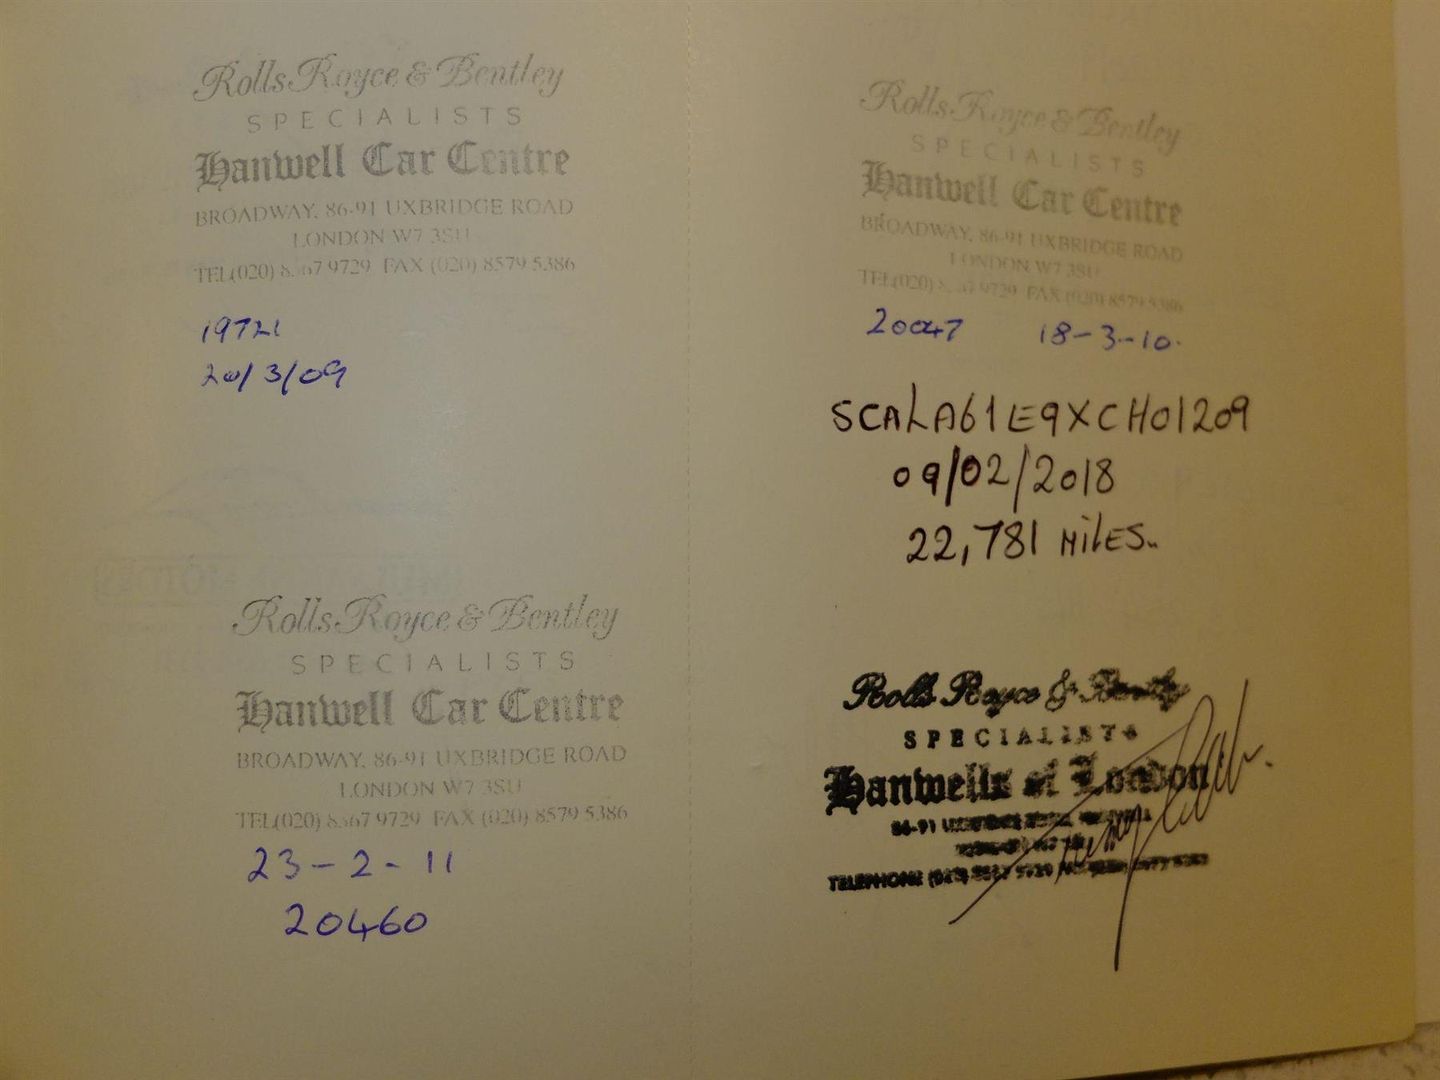 Rolls Royce & Bentley
SPECIALISTS
Hanwell Car Centre
BROADWAY, 86-91 UXBRIDGE ROAD
LONDON W7 3SU
TEL(020) 8567 9729 FAX (020) 8579 5386
19721
20/3/09
Rolls Royce & Bentley
SPECIALISTS
Hanwell Car Centre
BROADWAY, 86-91 UXBRIDGE ROAD
LONDON W7 3SU
TEL(020) 8567 9729 FAX (020) 8579 5386
23-2-11
20460
Rolls Royce & Bentley
SPECIALISTS
Hanwell Car Centre
BROADWAY, 86-91 UXBRIDGE ROAD
LONDON W7 3SU
TEL(020) 8567 9729 FAX (020) 8579 5386
20047 18-3-10.
SCALA61E9XCH01209
09/02/2018
22,781 MILES..
Rolls Royce & Bentley
SPECIALISTS
Hanwells of London
86-91 UXBRIDGE ROAD, HANWELL
TELEPHONE (020) 8567 9729